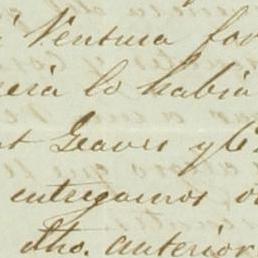 Ventura for
lo habia
Geaves y C
entregamos
dho. anterior